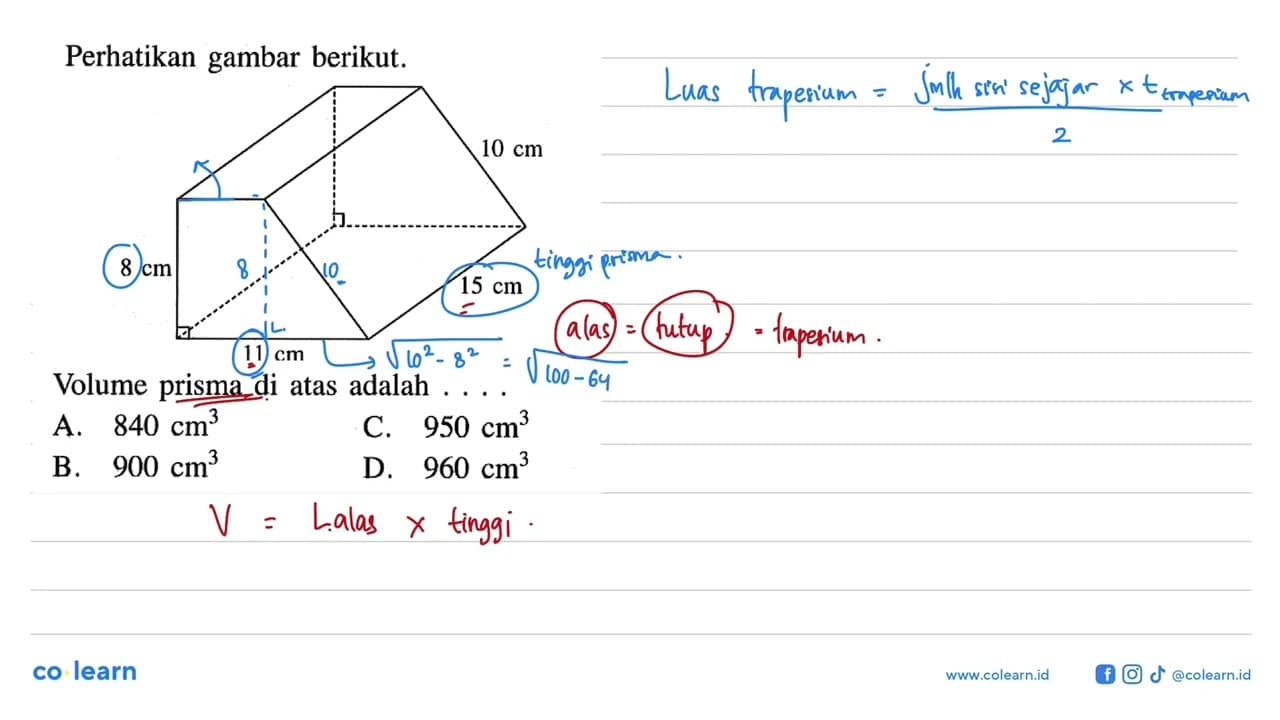 Perhatikan gambar berikut.
Luas trapesium = jmlh sisi sejajar × t trapesium
2
10 cm
8 cm
8
10
15 cm
tinggi prisma.
11 cm
√10² - 8² = √100 - 64
alas = tutup = trapesium.
Volume prisma di atas adalah . . . .
A. 840 cm³
C. 950 cm³
B. 900 cm³
D. 960 cm³
V = L.alas × tinggi.
co learn
www.colearn.id
@colearn.id